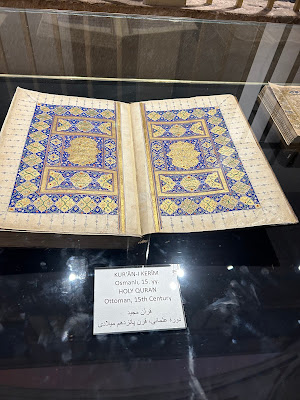 KUR'ÂN-I KERÎM
Osmanlı, 15. yy.
HOLY QURAN
Ottoman, 15th Century
قرآن مجید
دوره عثمانی، قرن پانزدهم میلادی